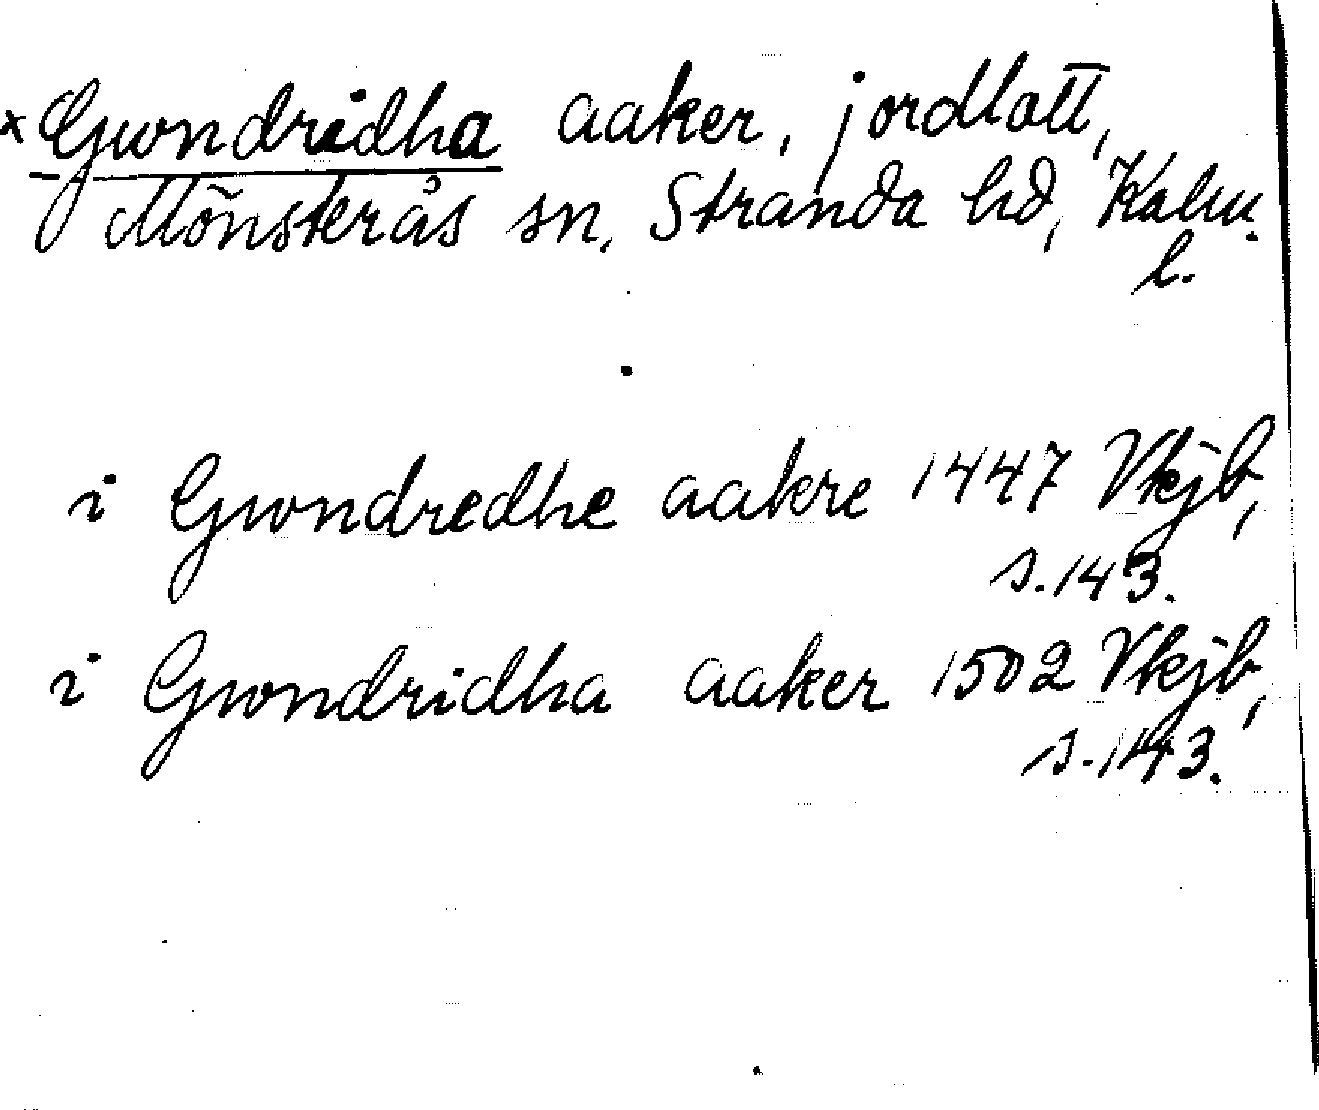 × Gwndridha aaker, jordlott,
Mönsterås sn, Stranda hd, Kalm.
l.
i Gwndredhe aakre 1447 Vkjb,
s. 143.
i Gwndridha aaker 1502 Vkjb,
s. 143.